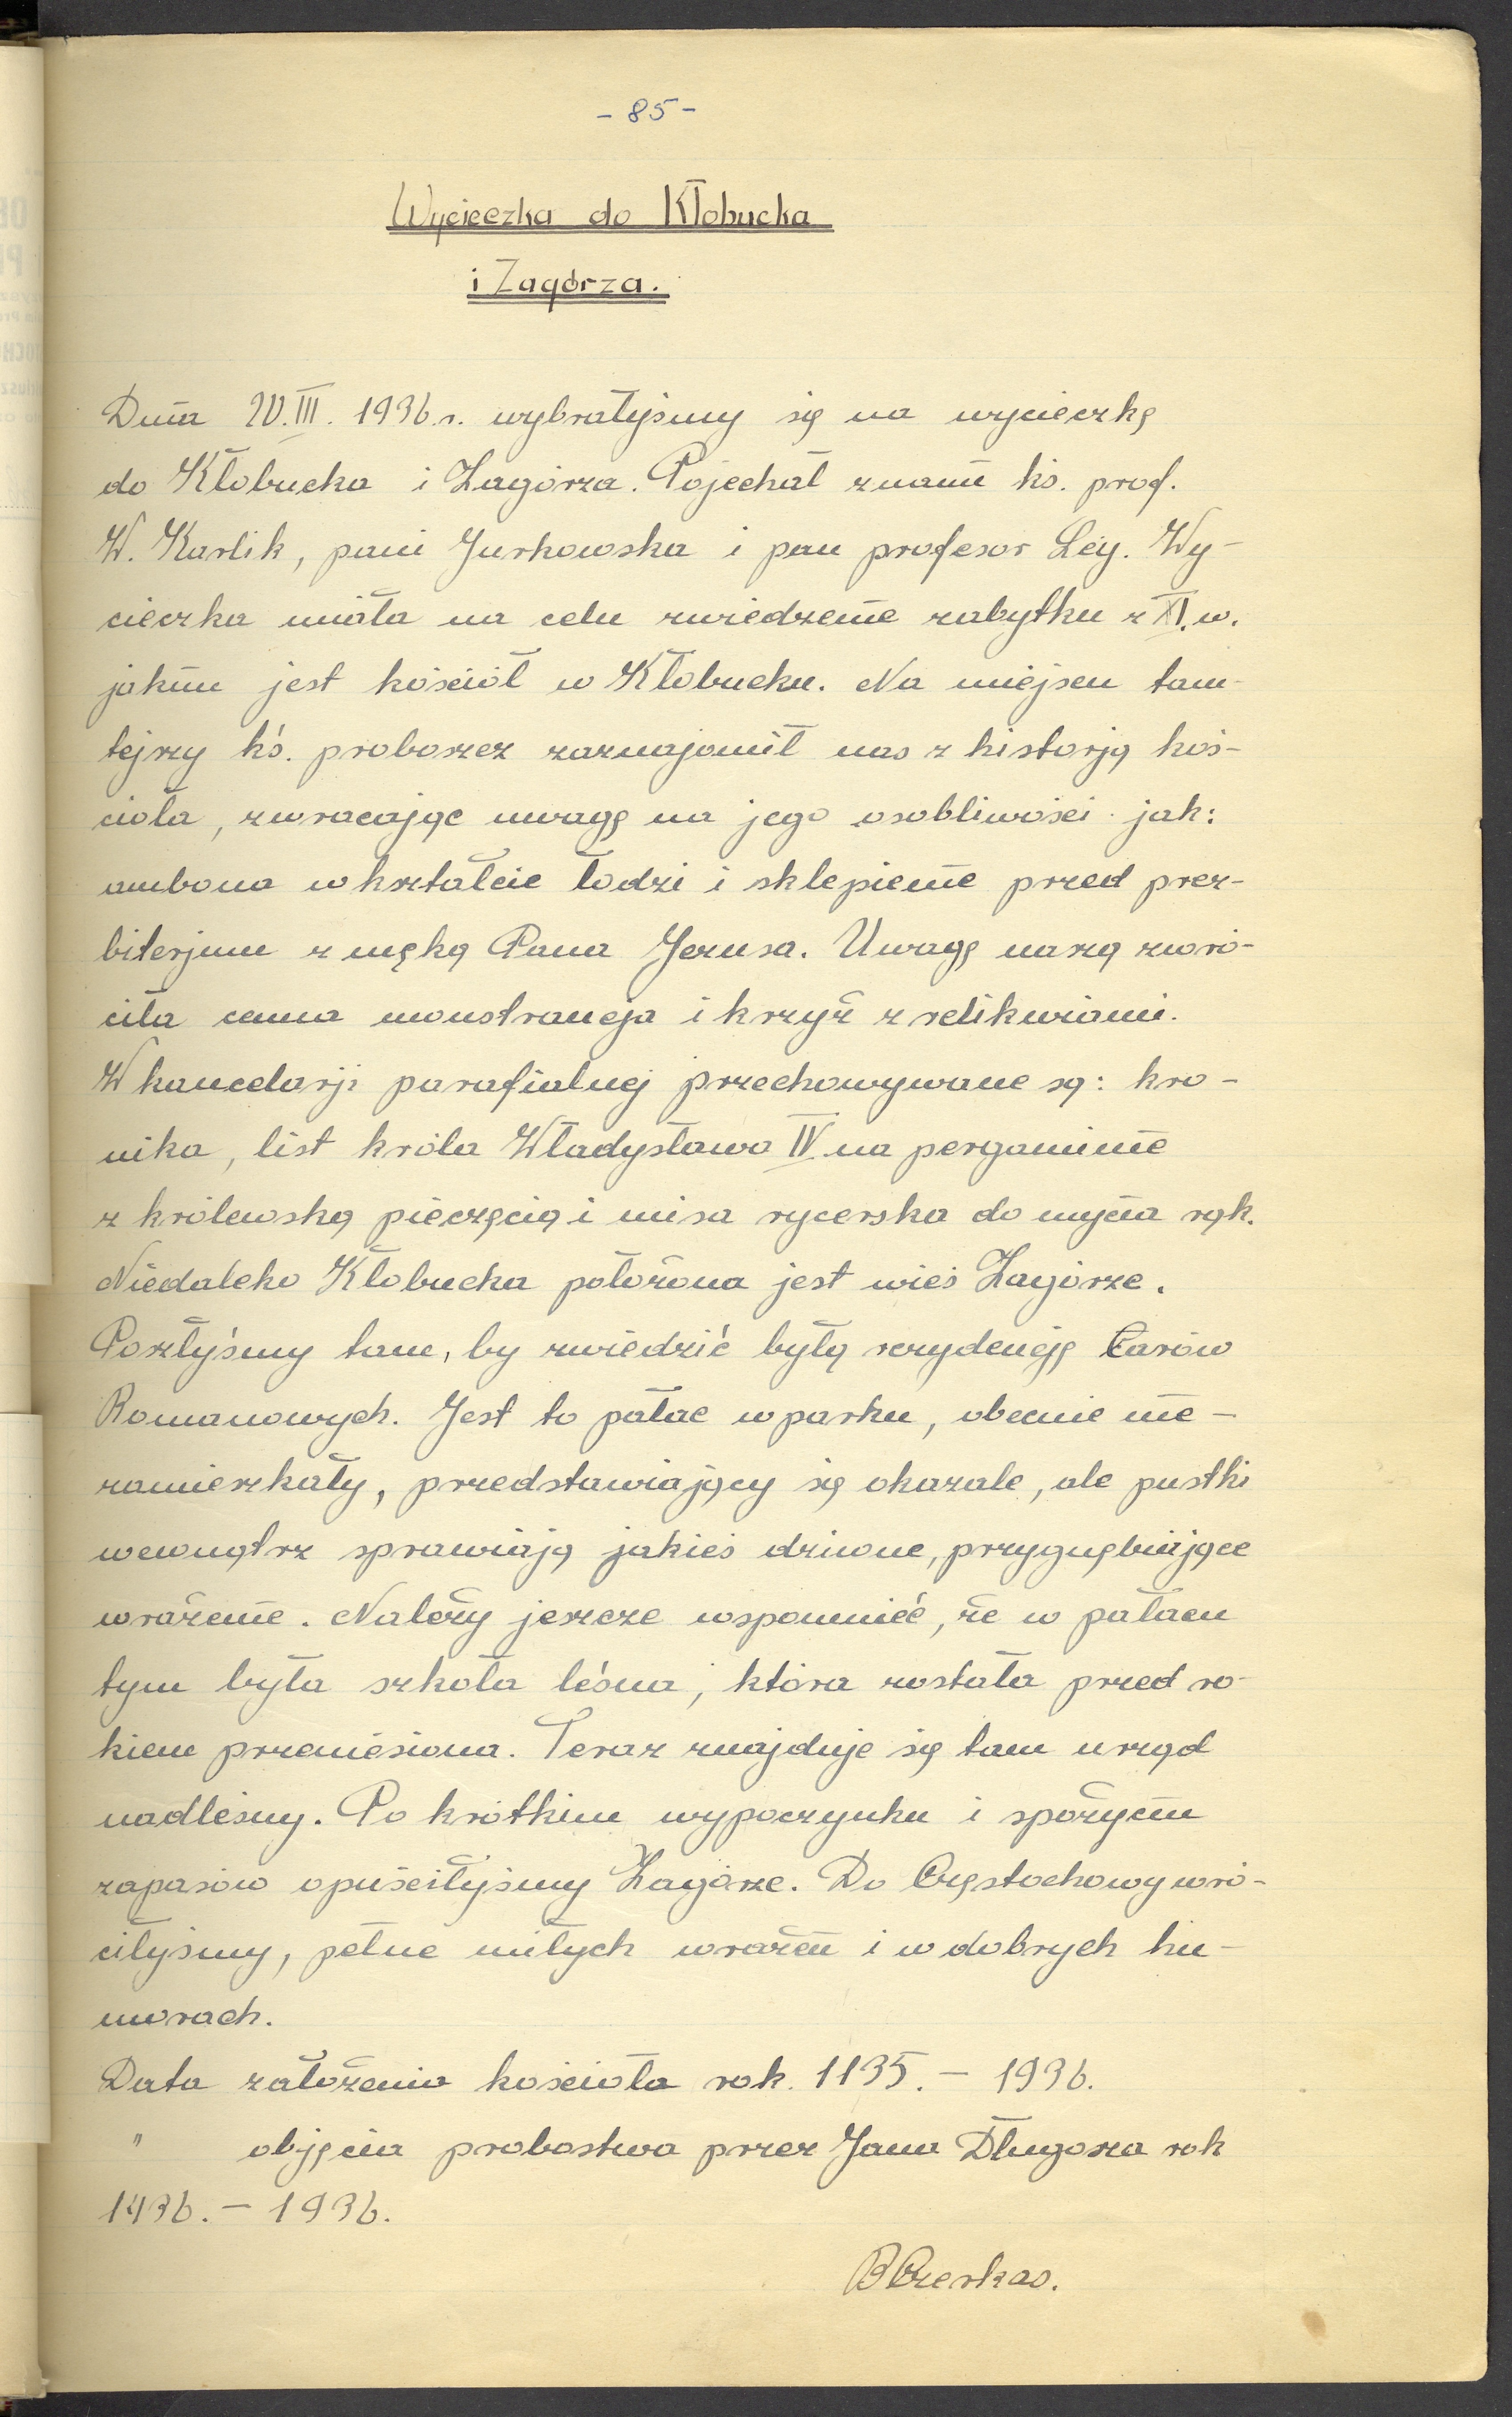 - 85 -
Wycieczka do Kłobucka
i Zagórza.
Dnia 20.III. 1936.r. wybrałyśmy się na wycieczkę
do Kłobucka i Zagórza. Pojechał znami ks. prof.
W. Karlik, pani Jurkowska i pan profesor Ley. Wy-
cieczka miała na celu zwiedzenie zabytku z XI.w.
jakim jest kościół w Kłobucku. Na miejscu tam-
tejszy ks. proboszcz zaznajomił nas z historją koś-
cioła, zwracając uwagę na jego osobliwości jak:
ambona w kształcie łodzi i sklepienie przed prez-
biterjum z męką Pana Jezusa. Uwagę naszą zwró-
ciła cenna monstrancja i krzyż z relikwiami.
W kancelarji parafialnej przechowywane są: kro-
nika, list króla Władysława IV na pergaminie
z królewską pieczęcią i misa rycerska do mycia rąk.
Niedaleko Kłobucka położona jest wieś Zagórze.
Poszłyśmy tam, by zwiedzić byłą rezydencję Carów
Romanowych. Jest to pałac w parku, obecnie nie-
zamieszkały, przedstawiający się okazale, ale pustki
wewnątrz sprawiają jakieś dziwne, przygnębiające
wrażenie. Należy jeszcze wspomnieć, że w pałacu
tym była szkoła leśna, która została przed ro-
kiem przeniesiona. Teraz znajduje się tam urząd
nadleśny. Po krótkim wypoczynku i spożyciu
zapasów opuściłyśmy Zagórze. Do Częstochowy wró-
ciłyśmy, pełne miłych wrażeń i w dobrych hu-
morach.
Data założenia kościoła rok. 1135. - 1936.
" objęcia probostwa przez Jana Długosza rok
1436. - 1936.